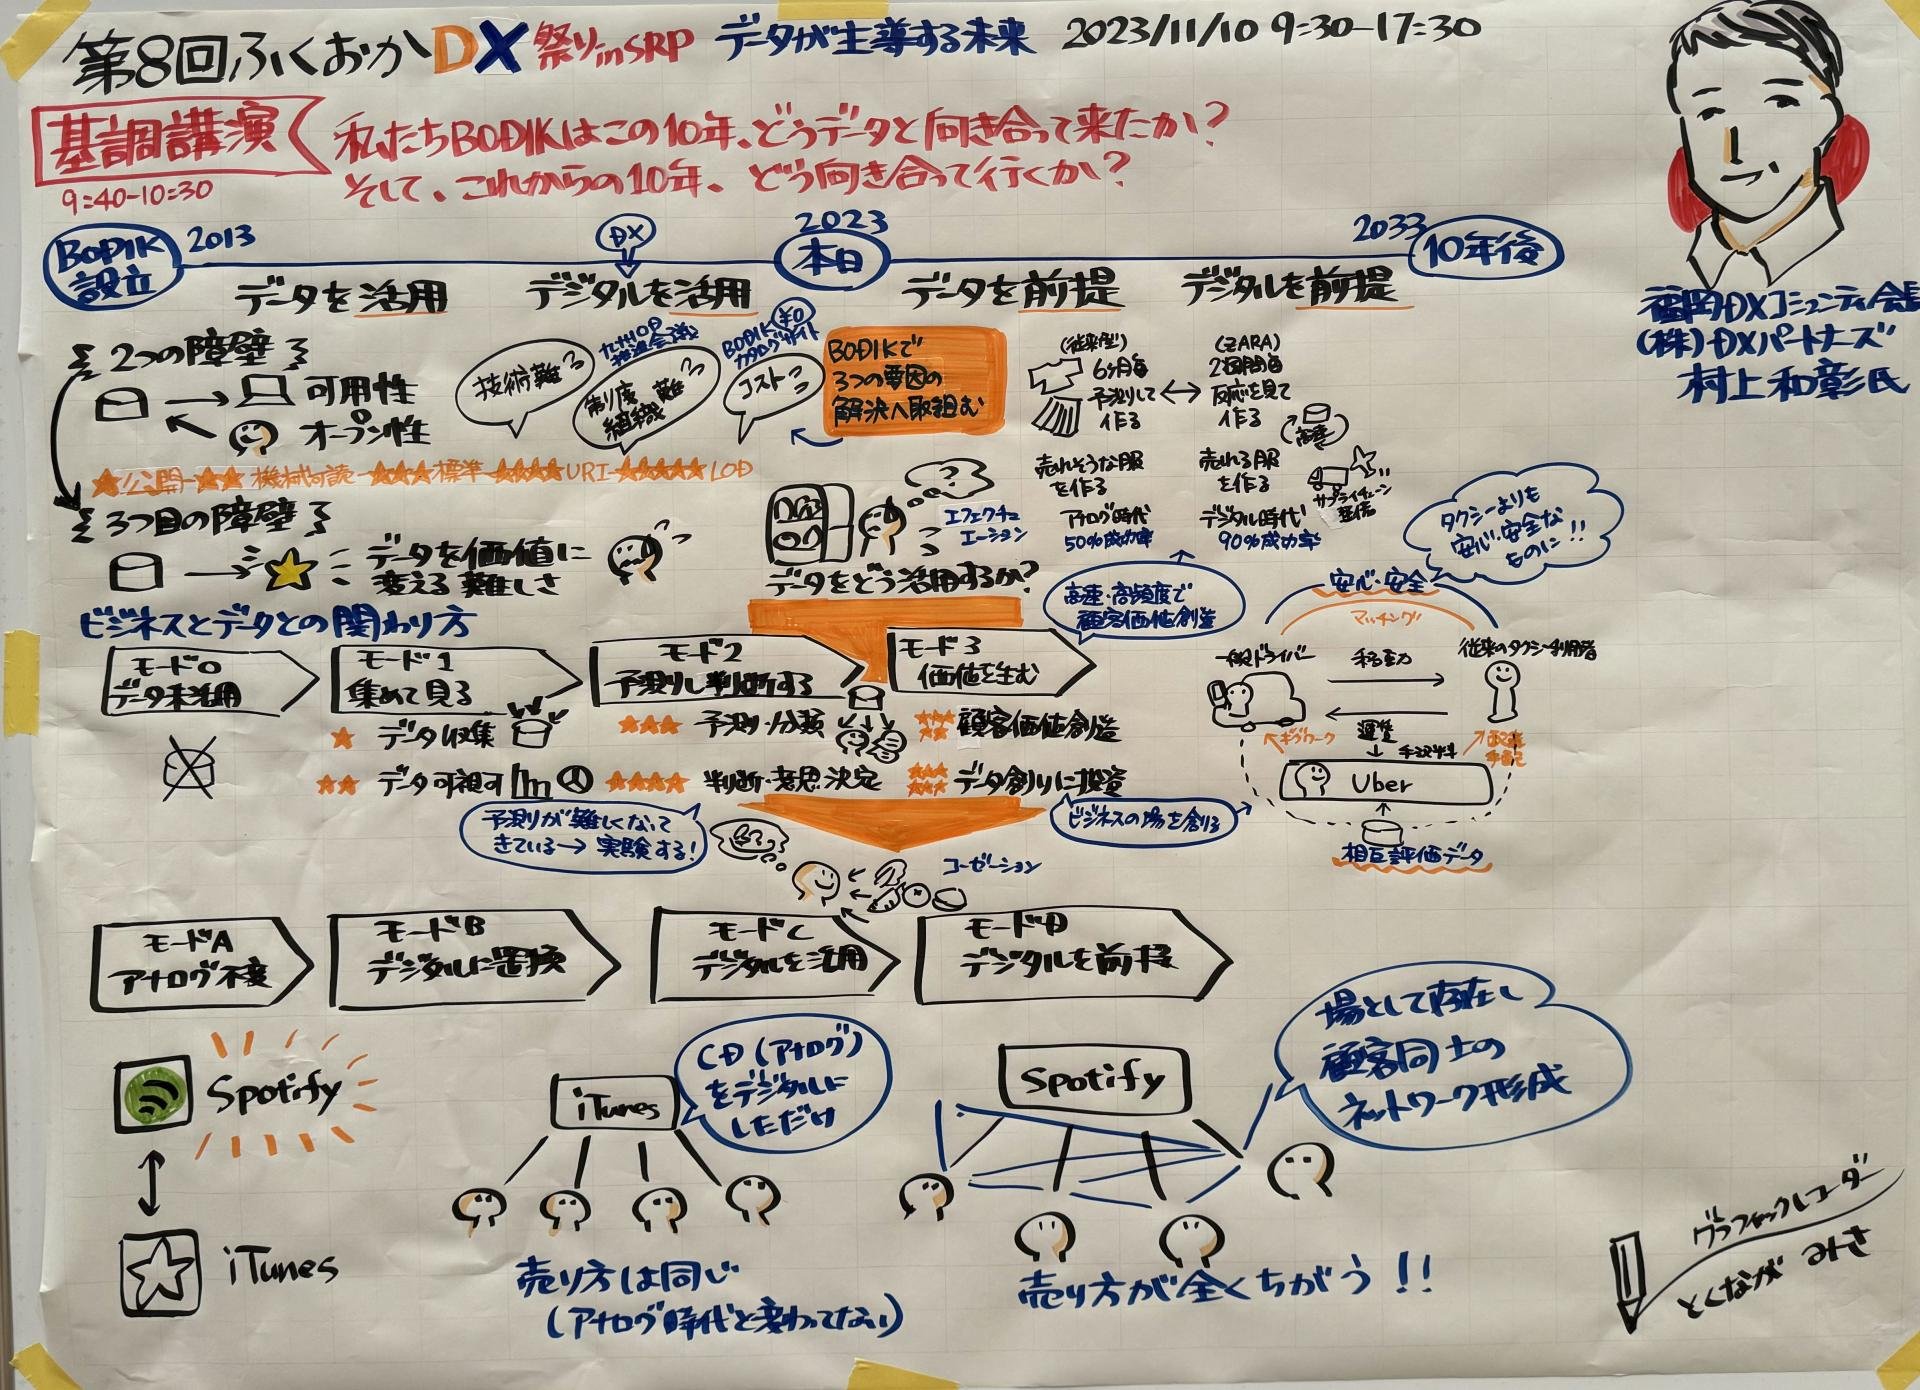 第8回ふくおかDX祭りinSRP データが主導する未来 2023/11/10 9:30-17:30
基調講演
9:40-10:30
私たちBODIKはこの10年、どうデータと向き合って来たか?
そして、これからの10年、どう向き合って行くか?
福岡DXコミュニティ会長
(株)DXパートナーズ
村上和彰氏
BODIK設立
2013
DX
2023
本日
2033
10年後
データを活用
デジタルを活用
データを前提
デジタルを前提
2つの障壁
可用性
オープン性
技術難
九州OP推進会議
制度組織難
BODIK ¥0
カタログサイト
コスト
BODIKで
3つの要因の
解決へ取組む
★公開-★★機械可読-★★★標準-★★★★URI-★★★★★LOD
3つ目の障壁
データを価値に
変える難しさ
エフェクチュエーション
データをどう活用するか?
(従来型)
6ヶ月毎
予測して
作る
(ZARA)
2週間毎
反応を見て
作る
高速
売れそうな服
を作る
売れる服
を作る
サプライチェーン
アナログ時代
50%成功率
デジタル時代
90%成功率
高速・高頻度で
顧客価値創造
タクシーよりも
安心・安全な
ものに!!
安心・安全
マッチング
一般ドライバー
移動
従来のタクシー利用者
ギグワーク
運賃
手数料
Uber
相互評価データ
ビジネスとデータとの関わり方
モード0
データ未活用
モード1
集めて見る
モード2
予測し判断する
モード3
価値を生む
★ データ収集
★★ データ可視可
★★★ 予測・分類
★★★★ 判断・意思決定
★★★★★ 顧客価値創造
★★★★★★ データ創りに投資
予測が難しくなって
きている→実験する!
ビジネスの場を創る
コーゼーション
モードA
アナログ不変
モードB
デジタルに置換
モードC
デジタルを活用
モードD
デジタルを前提
Spotify
iTunes
iTunes
CD(アナログ)
をデジタルに
しただけ
売り方は同じ
(アナログ時代と変わってない)
Spotify
場として存在し
顧客同士の
ネットワーク形成
売り方が全くちがう!!
グラフィックレコーダー
とくなが みさ